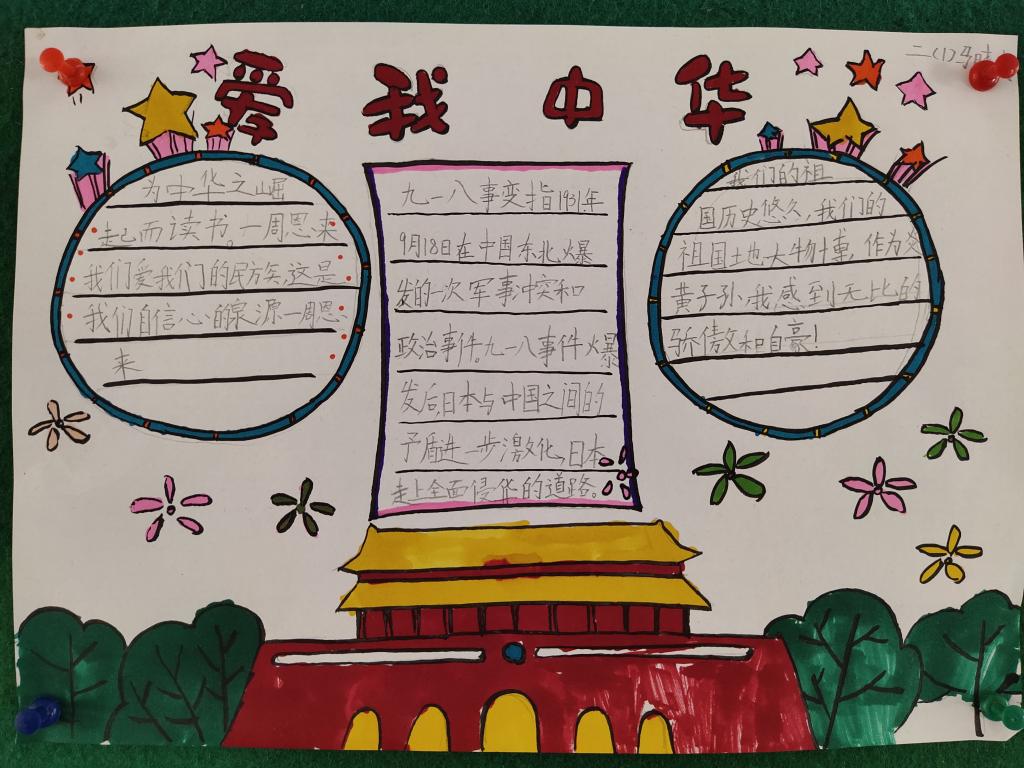 爱我中华
二(1)
为中华之崛
起而读书。一周恩来
我们爱我们的民族,这是
我们自信心的泉源一周恩
来
九一八事变指1931年
9月18日在中国东北爆
发的一次军事冲突和
政治事件。九一八事件火爆
发后,日本与中国之间的
矛盾进一步激化,日本
走上全面侵华的道路。
我们的祖
国历史悠久,我们的
祖国土地大物博,作为炎
黄子孙,我感到无比的
骄傲和自豪!